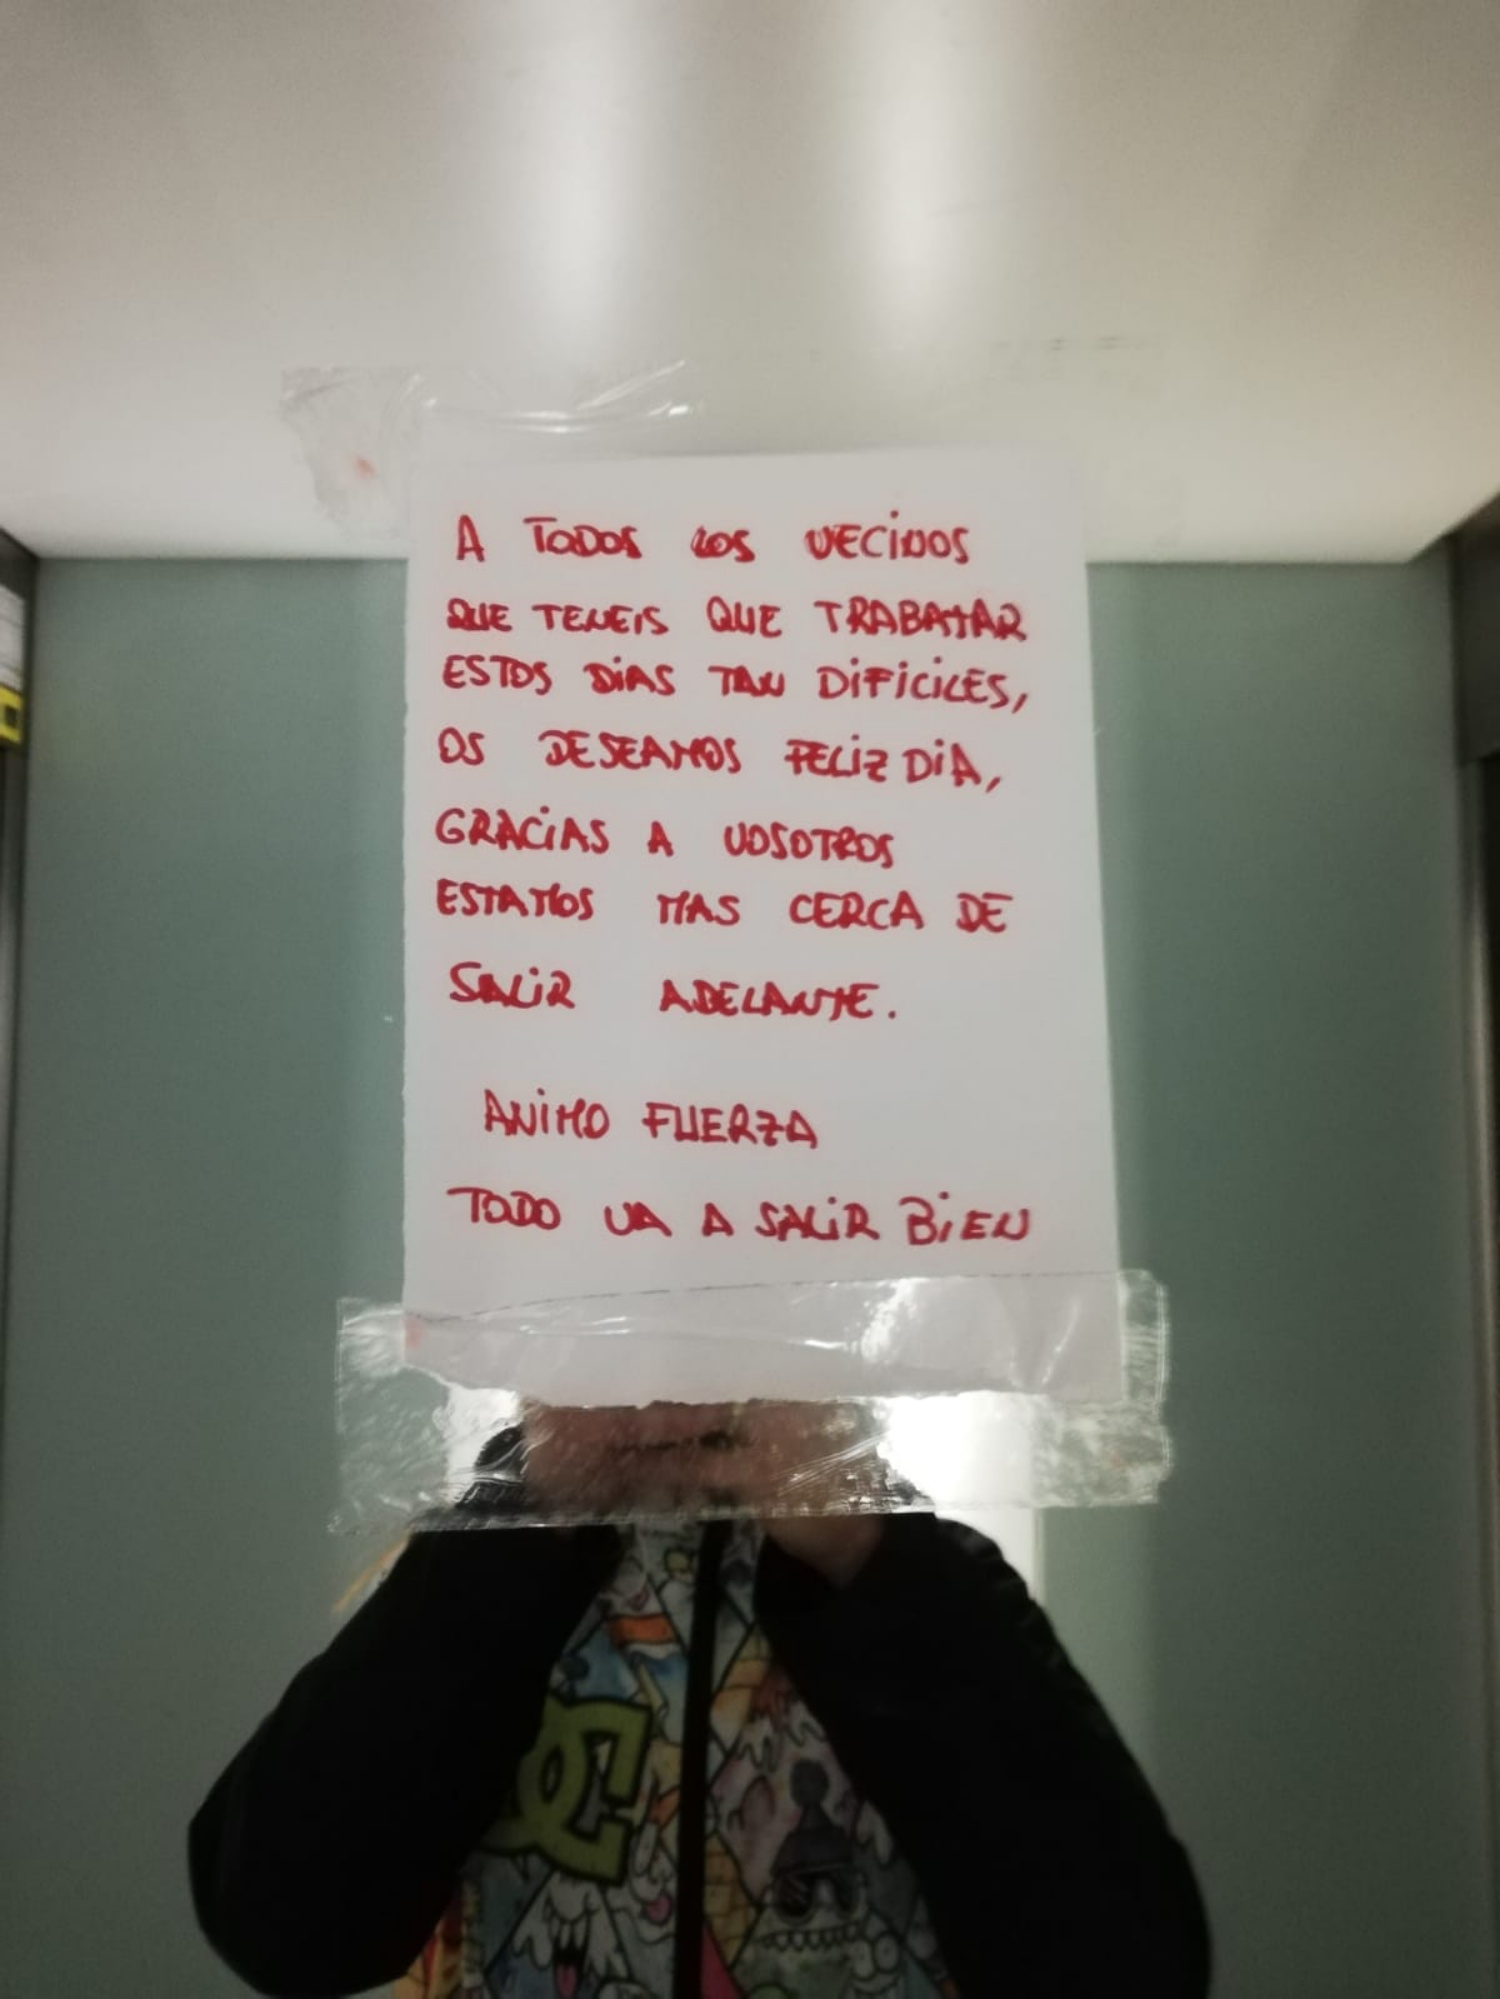 A TODOS LOS VECINOS
QUE TENEIS QUE TRABAJAR
ESTOS DIAS TAN DIFICILES,
OS DESEAMOS FELIZ DIA,
GRACIAS A VOSOTROS
ESTAMOS MAS CERCA DE
SALIR ADELANTE.
ANIMO FUERZA
TODO VA A SALIR BIEN